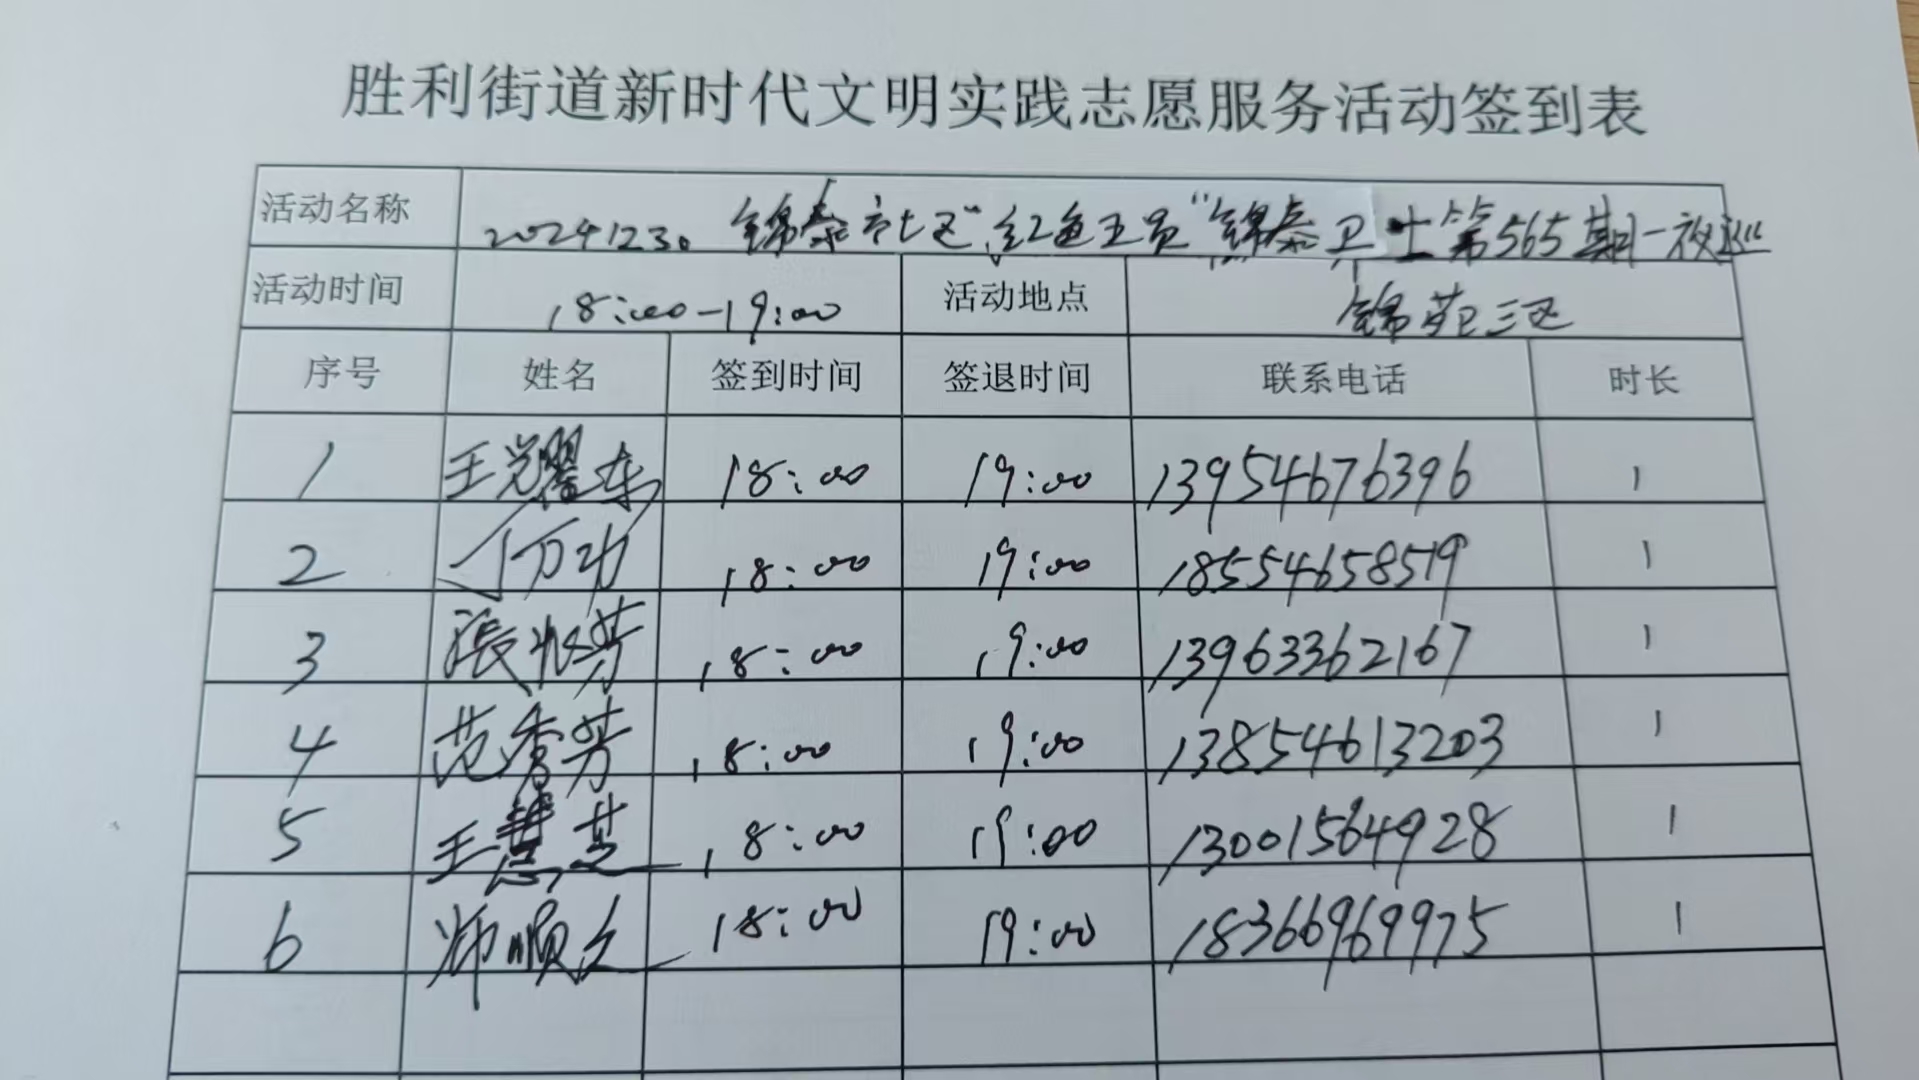 胜利街道新时代文明实践志愿服务活动签到表
活动名称 20241230 锦泰社区“红色五员”锦泰卫士第565期一夜巡
活动时间 18:00-19:00 活动地点 锦苑三区
序号 姓名 签到时间 签退时间 联系电话 时长
1 王党耀东 18:00 19:00 13954676396 1
2 丁万功 18:00 19:00 18554658519 1
3 张 芳 18:00 19:00 13963362167 1
4 范秀芳 18:00 19:00 13854613203 1
5 王慧芝 18:00 19:00 13001564928 1
6 顺 18:00 19:00 18366969975 1